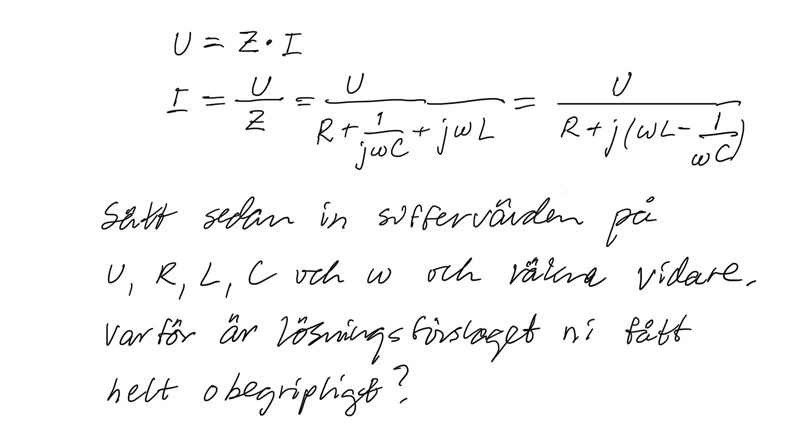 U = Z · I
I = U/Z = U/(R + 1/(jωC) + jωL) = U/(R + j(ωL - 1/(ωC)))
Sätt sedan in siffervärden på
U, R, L, C och ω och räkna vidare.
Varför är lösningsförslaget ni fått
helt obegripligt?